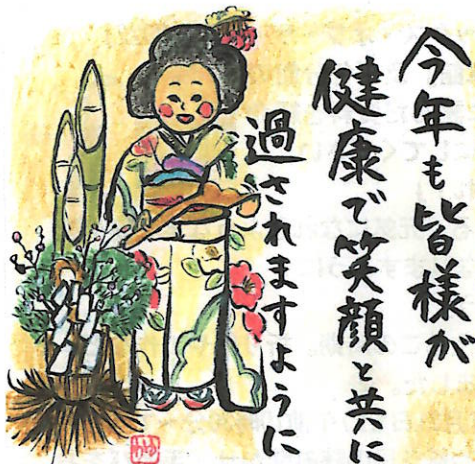 今年も皆様が
健康で笑顔と共に
過されますように